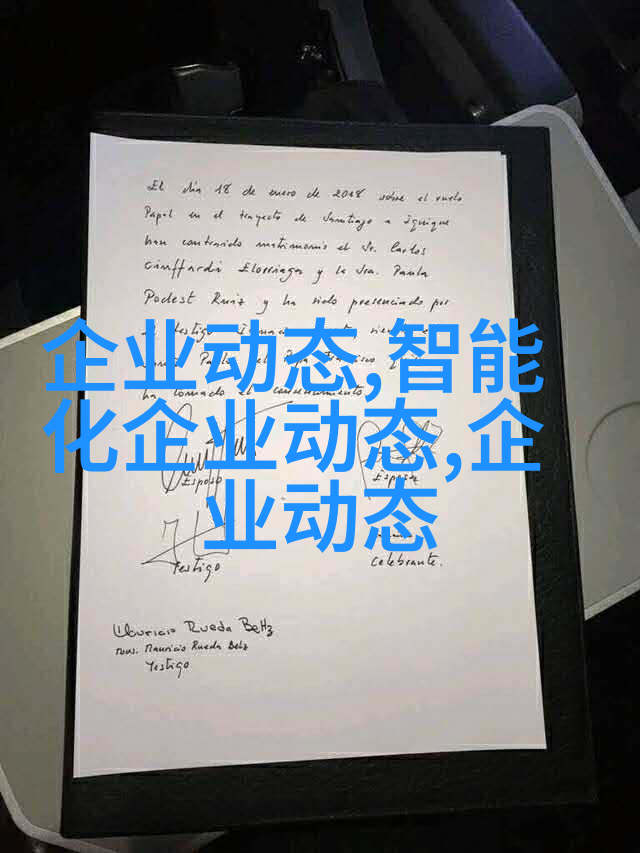 El día 18 de enero de 2018 sobre el vuelo
Papal en el trayecto de Santiago a Iquique
han contraido matrimonio el Sr. Carlos
Ciuffardi Elorriaga y la Sra. Paula
Podest Ruiz y ha sido presenciado por
企业动态,智能
ha tomado el consentimiento
化企业动态,企
Esposo
Esposa
业动态
Testigo
Celebrante.
Mauricio Rueda Beltz
Mons. Mauricio Rueda Beltz
Testigo